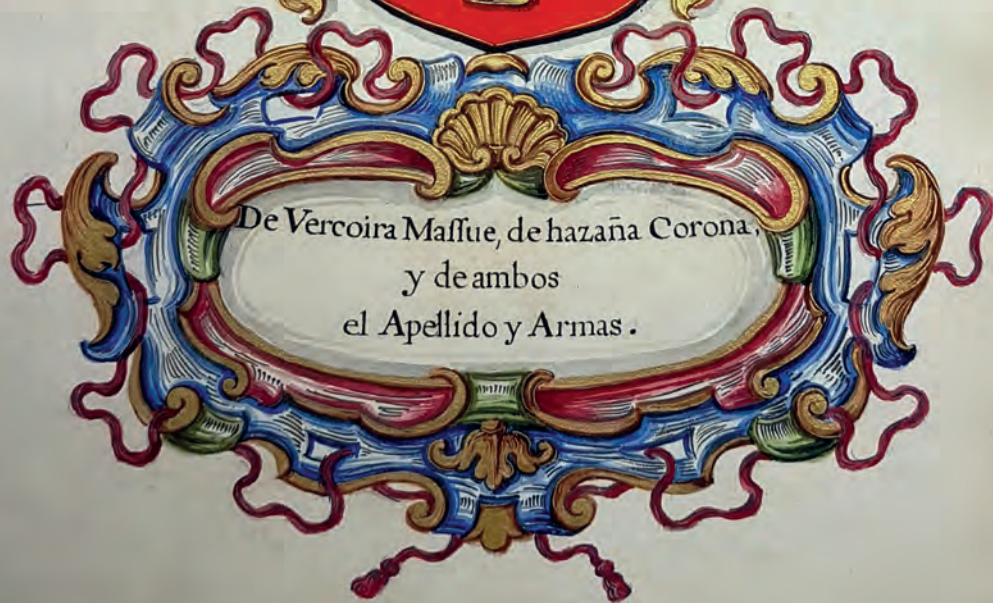 De Vercoira Maſſue, de hazaña Corona,
y de ambos
el Apellido y Armas.